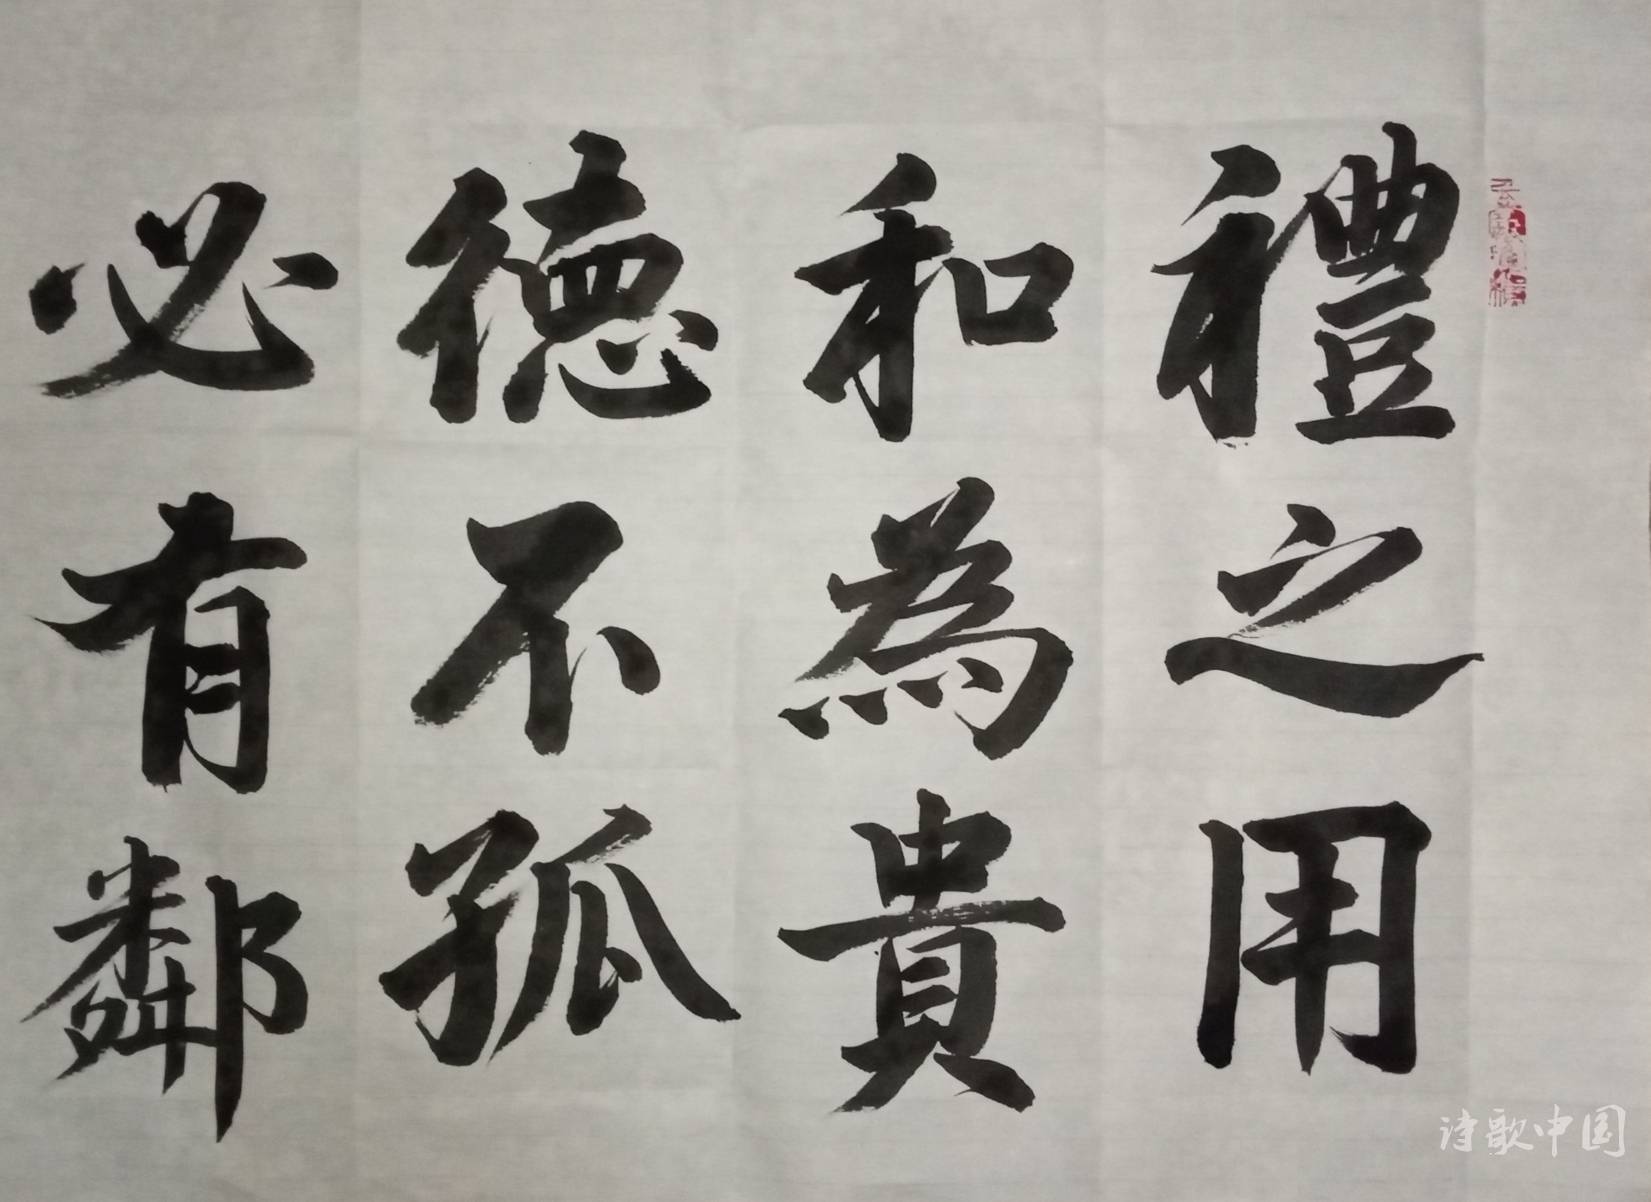 禮之用
和為貴
徳不孤
必有鄰
诗歌中国